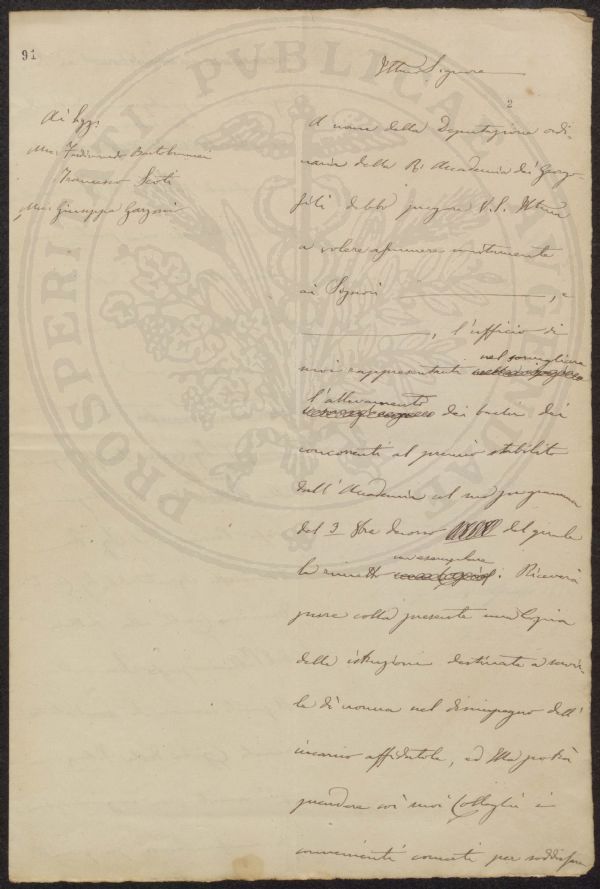 91
PROSPERITATI PVBLICAE AVGENDAE
Ill.mo Signore
2
Ai Sigg.
Ferdinando Bartolommei
Francesco Scoti
Giuseppe Garzoni
A nome della Deputazione ordi-
naria della R. Accademia dei Georgo-
fili debbo pregare V.S. Ill.ma
a volere assumere unitamente
ai Signori ————, e
————, l'ufficio di
suoi rappresentanti nel sorvegliare
l'allevamento dei bachi dei
concorrenti al premio stabilito
dall'Accademia col suo programma
del 3 decorso del quale
le rimetto un esemplare. Riceverà
pure colla presente una Copia
delle istruzioni destinate a servir-
le di norma nel disimpegno dell'
incarico affidatole, ed Ella potrà
prendere coi suoi Colleghi i
convenienti concerti per soddisfare